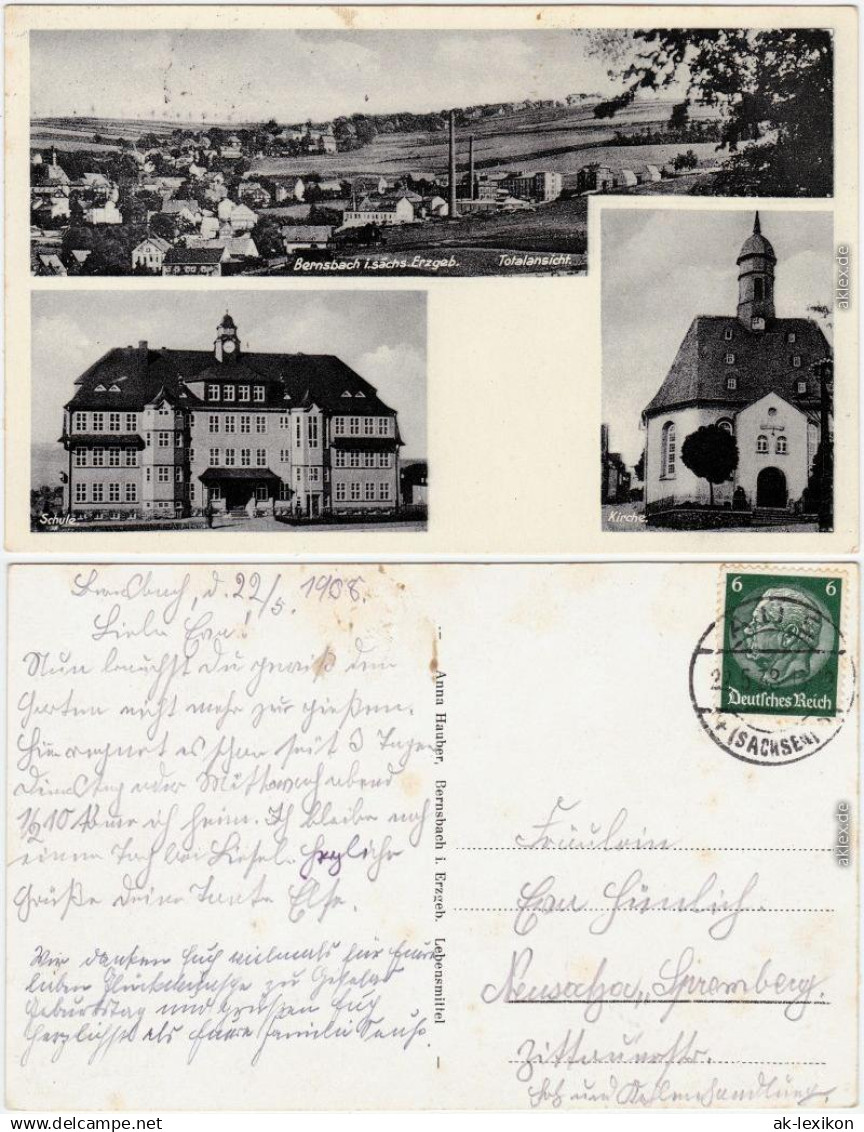 Bernsbach i. sächs. Erzgeb. Totalansicht.
Schule
Kirche.
aklex.de
Bernsbach, d. 22/5. 1938.
Liebe Eva!
Nun brauchst Du gewiß den
Garten nicht mehr zur gießen.
Hier regnet es schon seit 3 Tagen
Dienstag oder Mittwoch abend
½10 komme ich heim. Ich bleibe noch
einen Tag bei Liesel. Herzliche
Grüße deine Tante Else.
Wir danken Euch vielmals für Eure
lieben Glückwünsche zu
Geburtstag und grüßen Euch
herzlichst als Eure Familie
Anna Hauber, Bernsbach i. Erzgeb. Lebensmittel
6 6
Deutsches Reich
(SACHSEN)
Fräulein
Eva
Neusalza-Spremberg.
Zittauerstr.
Holz und Kohlenhandlung.
aklex.de
ak-lexikon